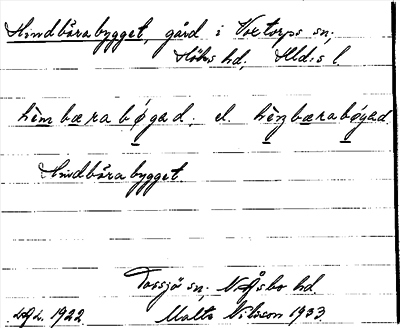 Hindbärabygget, gård i Voxtorps sn,
Höks hd, Hlds l.
hèmbæra bǿgad, el. hèn̥bærabǿgad
Hindbärabygget.
Tossjö sn, N. Åsbo hd
1922 Malte Nilsson 1933